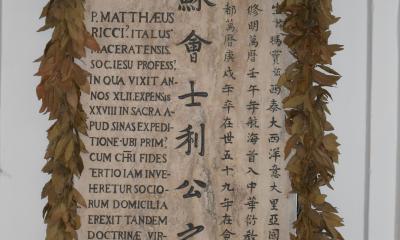 P. MATTHÆUS
RICCI, ITALUS
MACERATENSIS,
SOC. IESU PROFESS.
IN QUA VIXIT AN-
NOS XLII. EXPENSIS
XXVIII IN SACRA A-
PUD SINAS EXPEDI-
TIONE · UBI PRIM.
CUM CHRI FIDES
TERTIO IAM INVE-
HERETUR SOCIO-
RUM DOMICILIA
EREXIT TANDEM
DOCTRINÆ VIR-
會士利公之
號西泰大西洋意大里亞國
修明萬曆壬午年航海首入中華衍教
都萬曆庚戌年卒在世五十九年在會